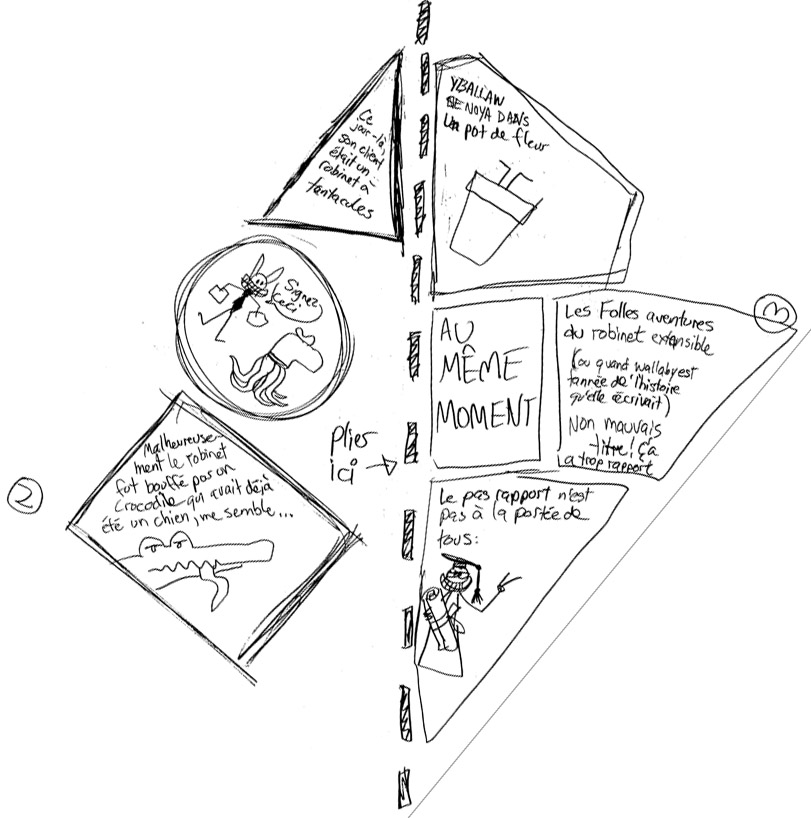 Ce
jour-là,
son client
était un
robinet à
tentacules
Signez
ceci
Malheureuse-
ment le robinet
fut bouffé par un
crocodile qui avait déjà
été un chien, me semble...
2
Plier
ici
YBALLAW
SE NOYA DANS
Un pot de fleur
AU
MÊME
MOMENT
3
Les Folles aventures
du robinet extensible
(ou quand wallaby est
tannée de l'histoire
qu'elle écrivait)
Non mauvais
titre! Ça
a trop rapport
Le pas rapport n'est
pas à la portée de
tous: